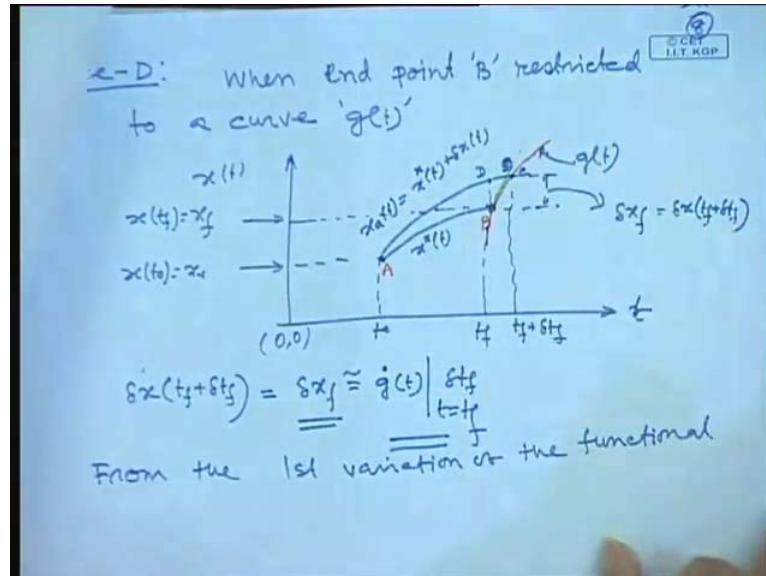 8
© CET
I.I.T. KGP
e-D: When end point 'B' restricted
to a curve 'g(t)'
x(t)
x(t_f)=x_f
x(t_0)=x_0
x_a(t) = x*(t) + δx(t)
x*(t)
A
B
D
C
g(t)
δx_f = δx(t_f+δt_f)
(0,0)
t_0
t_f
t_f+δt_f
t
δx(t_f+δt_f) = δx_f ≅ ġ(t)|_{t=t_f} δt_f
From the 1st variation of the functional